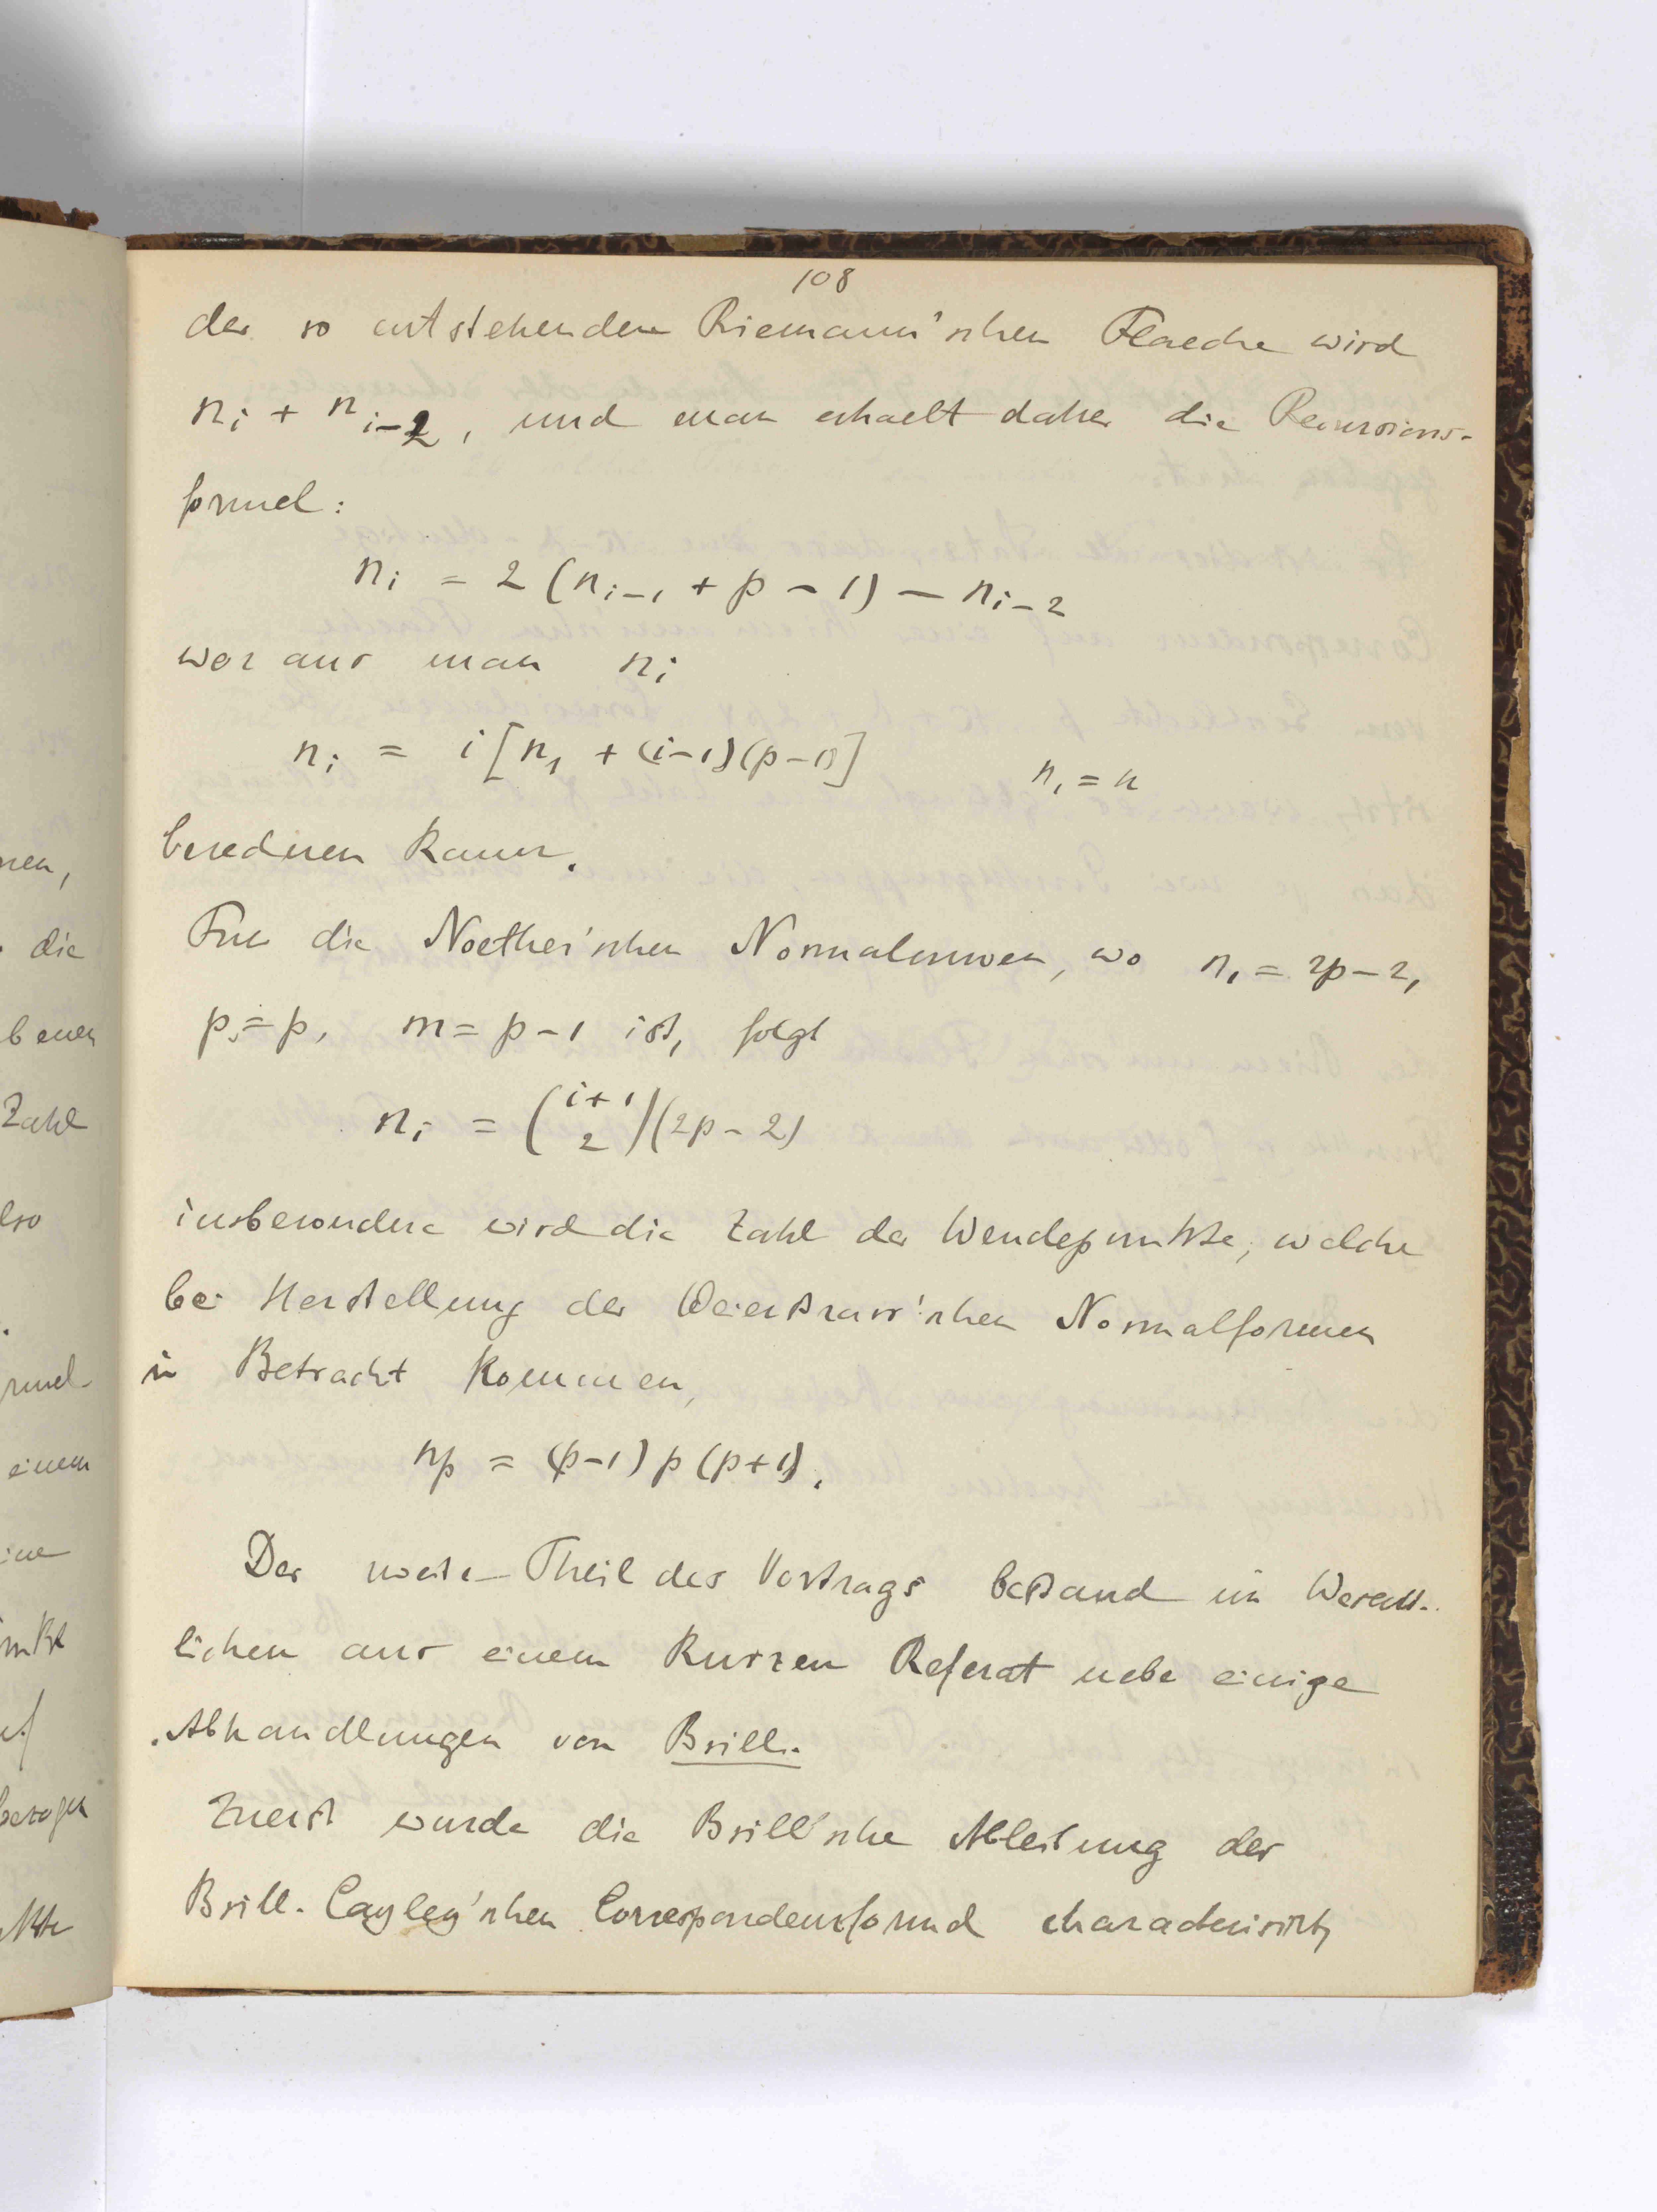 108
der so entstehenden Riemann'schen Flaeche wird
n_i + n_{i-2}, und man erhaelt daher die Recursions-
formel:
n_i = 2 (n_{i-1} + p - 1) - n_{i-2}
woraus man n_i
n_i = i [n_1 + (i-1)(p-1)] n_1 = n
berechnen kann.
Fuer die Noether'schen Normalcurven, wo n_1 = 2p-2,
p = p, m = p-1 ist, folgt
n_i = \binom{i+1}{2} (2p-2)
insbesondere wird die Zahl der Wendepunkte, welche
bei Herstellung der Weierstrass'schen Normalformen
in Betracht kommen,
n_p = (p-1) p (p+1).
Der zweite Theil des Vortrags bestand im Wesent-
lichen aus einem kurzen Referat ueber einige
Abhandlungen von Brill.
Zuerst wurde die Brill'sche Ableitung der
Brill-Cayley'schen Correspondenzformel characterisirt,
nen,
die
benen
Zahl
lso
rmel
einem
ine
inkt
bezogen